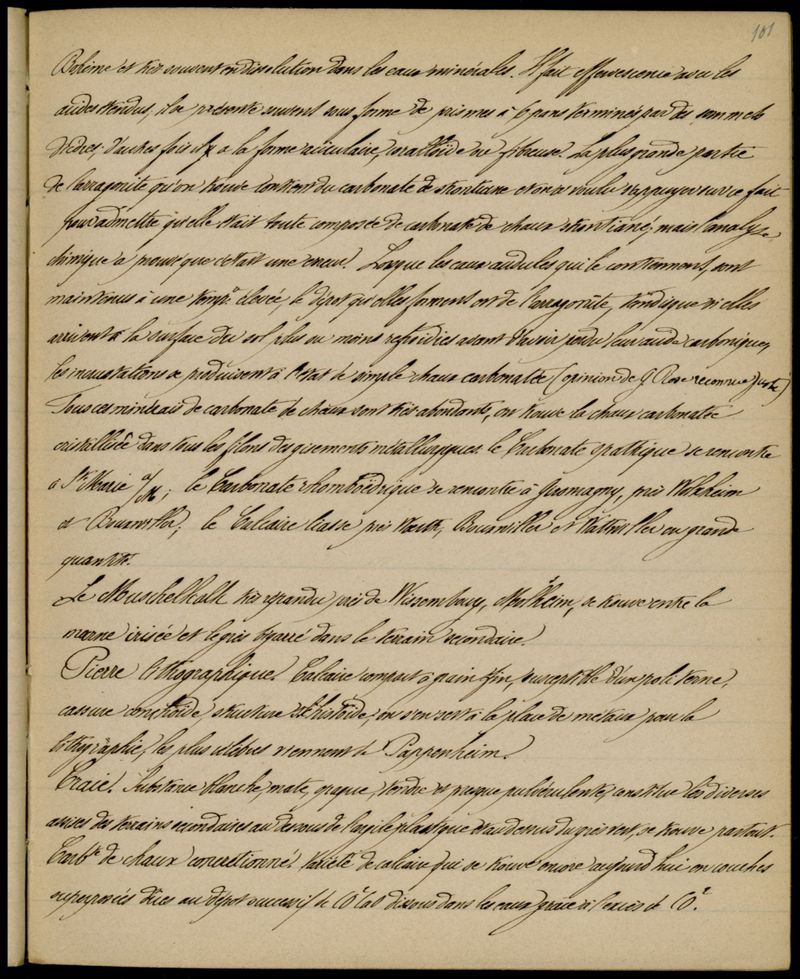 101
Bohème et très souvent en dissolution dans les eaux minérales. Il fait effervescence avec les
acides étendus, il se présente souvent sous forme de prismes à 6 pans terminés par des sommets
dièdres; d'autres fois il a la forme aciculaire, coralloïde ou fibreuse. La plus grande partie
de l'arragonite qu'on trouve contient du carbonate de strontiane et on a voulu s'appuyer sur ce fait
pour admettre qu'elle était toute composée de carbonate de chaux strontiané; mais l'analyse
chimique a prouvé que c'était une erreur. Lorsque les eaux acidules qui le contiennent, sont
maintenues à une tempre élevée, le dépôt qu'elles forment est de l'arragonite, tandis que si elles
arrivent à la surface du sol plus ou moins refroidies avant d'avoir perdu leur acide carbonique,
les incrustations se produisent à l'état de simple chaux carbonatée (opinion de G. Rose reconnue juste)
Tous ces minérais de carbonate de chaux sont très abondants, on trouve la chaux carbonatée
cristallisée dans tous les filons des gisements métallurgiques. le Carbonate spathique se rencontre
à Ste Marie a/M; le Carbonate rhomboëdrique se rencontre à Giromagny, près
et Bouxwiller; le Calcaire liasse près Woerth, Bouxwiller et en grande
quantité.
Le Muschelkalk très répandu près de Wissembourg, se trouve entre la
marne irisée et le grès bigarré dans le terrain secondaire.
Pierre lithographique. Calcaire compact à grain fin, susceptible d'un poli terne,
cassure conchoïde, structure schistoïde, on s'en sert à la place de métaux pour la
lithographie, les plus célèbres viennent de Pappenheim.
Craie. Substance blanche, mate, opaque, tendre et presque pulvérulente, constitue les diverses
assises des terrains secondaires au dessous de l'argile plastique et au dessus du grès vert, se trouve partout.
Carbte de chaux concrétionné. Variété de calcaire qui se trouve encore aujourd'hui en couches
superposées dûes au dépôt successif de CO² CaO dissous dans les eaux grâce à l'excès de CO².